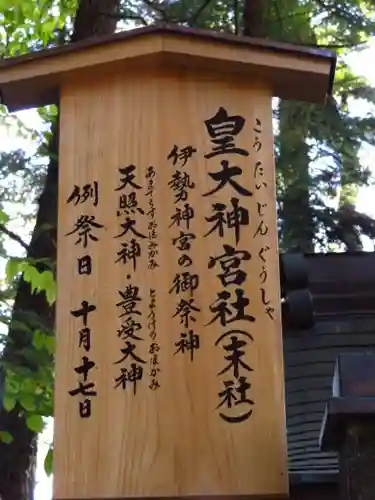 皇大神宮社(末社)
こうたいじんぐうしゃ
伊勢神宮の御祭神
天照大神・豊受大神
あまてらすおおみかみ とようけのおおかみ
例祭日 十月十七日